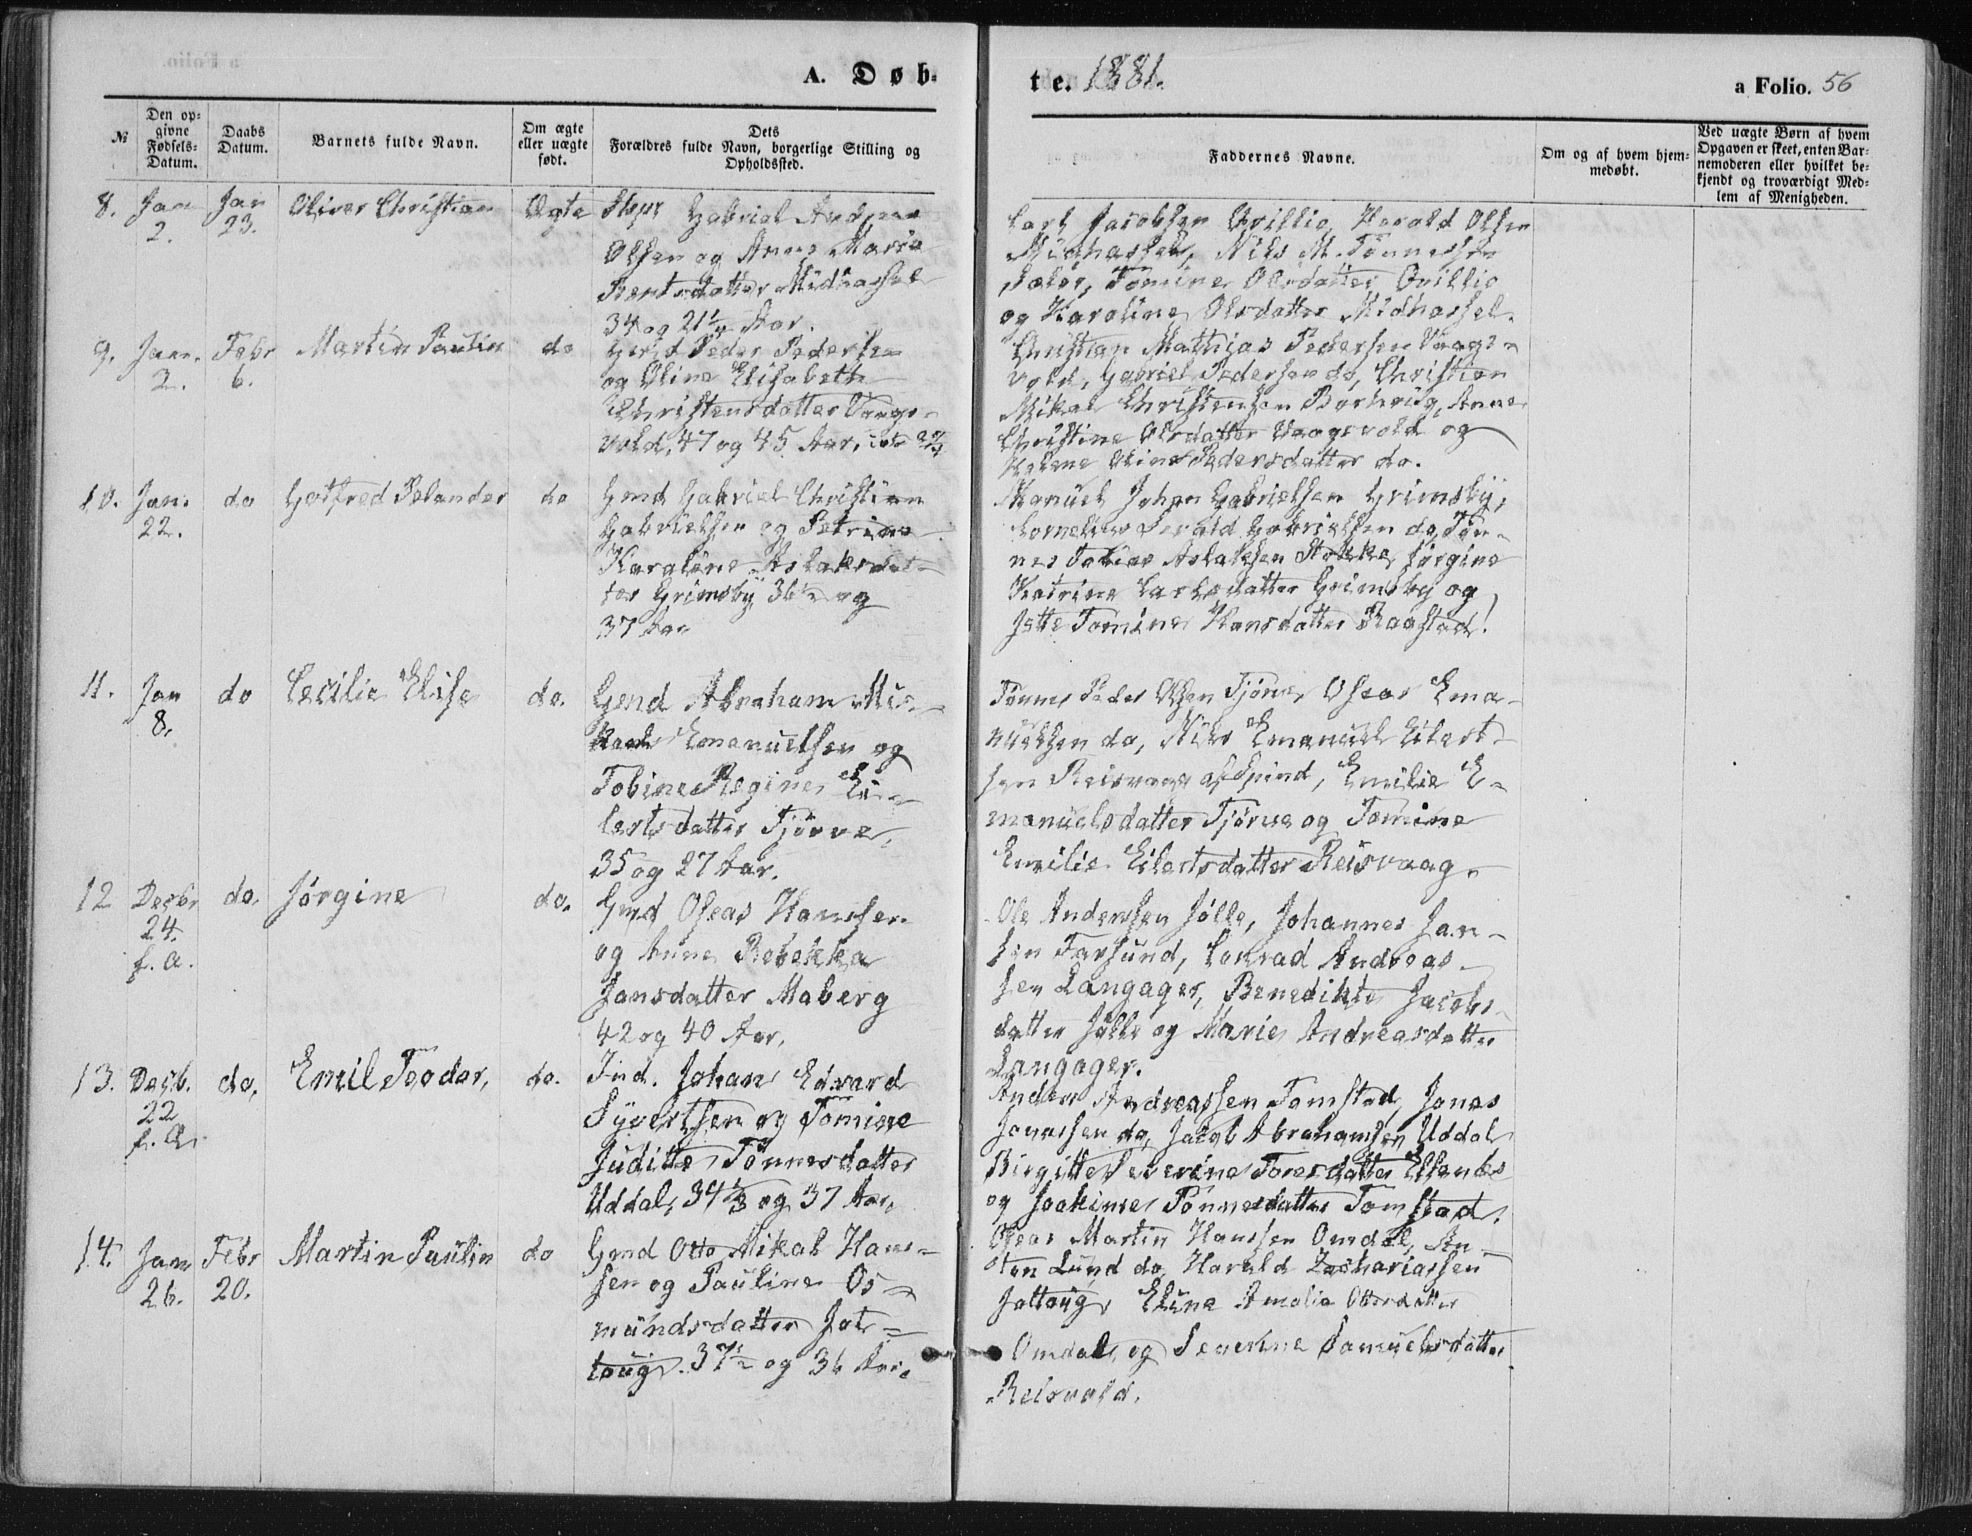 A. Døb-
te. 1881.
a Folio. 56
№
Den op-
givne
Fødsels-
Datum.
Daabs
Datum.
Barnets fulde Navn.
Om ægte
eller uægte
født.
Dets
Forældres fulde Navn, borgerlige Stilling og
Opholdssted.
Faddernes Navne.
Om og af hvem hjem-
medøbt.
Ved uægte Børn af hvem
Opgaven er skeet, enten Bar-
nemoderen eller hvilket be-
kjendt og troværdigt Med-
lem af Menigheden.
8. Jan 2. Jan 23. Oliver Christian Ægte
Gabriel Andreas
Olsen og Anne Marie
Berntsdatter Midhassel
34 og 21 1/4 Aar.
Carl Jacobsen Qvillio, Harald Olsen
Midhassel, Nils M. Tønnessen
Tomine Olsdatter Qvillio
og Karoline Olsdatter Midhassel.
9. Jan. 2. Febr 6. Martin Paulin do
Peder Pedersen
og Oline Elisabeth
Christensdatter Vaags-
vold, 47 og 45 Aar,
Christian Mathias Pedersen Vaags-
vold, Gabriel Pedersen do, Christian
Mikal Christensen Borhoug, Anne
Christine Olsdatter Vaagsvold og
Helene Oline Pedersdatter do.
10. Jan. 22. do Gotfred Pelander do
Gmd Gabriel Christian
Gabrielsen og Petrine
Karoline Aslaksdat-
ter Grimsby 36 1/2 og
37 Aar
Manuel Johan Gabrielsen Grimsby,
Cornelius Gabrielsen do, Tøn-
nes Tobias Aslaksen Stokke, Jørgine
Katrine Carlsdatter Grimsby og
Jette Tomine Hansdatter Raastad.
11. Jan 8. do Cecilie Elise do.
Gmd Abraham Mi-
Emanuelsen og
Tobine Regine Ei-
lertsdatter Tjørve,
35 og 27 Aar.
Tønnes Peder Olsen Tjørve, Oseas Ema-
nuelsen do, Nils Emanuel Eilert-
sen Reisvaag af Spind, Emilie E-
manuelsdatter Tjørve og Tomine
Emilie Eilertsdatter Reisvaag.
12 Desbr 24. f. a. do. Jørgine do.
Gmd Oseas Hanssen
og Anne Rebekka
Jansdatter Maberg
42 og 40 Aar.
Ole Andersen Jølle, Johannes Jan-
sen Farsund, Conrad Andreas-
sen Langager, Benedikte Jacobs-
datter Jølle og Marie Andreasdatter
Langager.
13. Desb. 22 f. a. do, Emil Teodor, do.
Ind. Johan Edvard
Syvertsen og Tomine
Juditte Tønnesdatter
Uddal, 34 1/3 og 37 Aar.
Anders Andreassen Tomstad, Jonas
Jonassen do, Jacob Abrahamsen Uddal
Birgitte Severine Toresdatter
og Joakime Tønnesdatter Tomstad.
14. Jan 26. Febr 20. Martin Paulin do
Gmd Otto Mikal Hans-
sen og Pauline Os-
mundsdatter Jat-
toug. 37 1/2 og 36 Aar.
Oseas Martin Hanssen Omdal, An-
ton Lund do, Harald Zachariassen
Jattoug, Eline Amalie Ottersdatter
Omdal, og Severine Samuelsdatter
Reisvold.